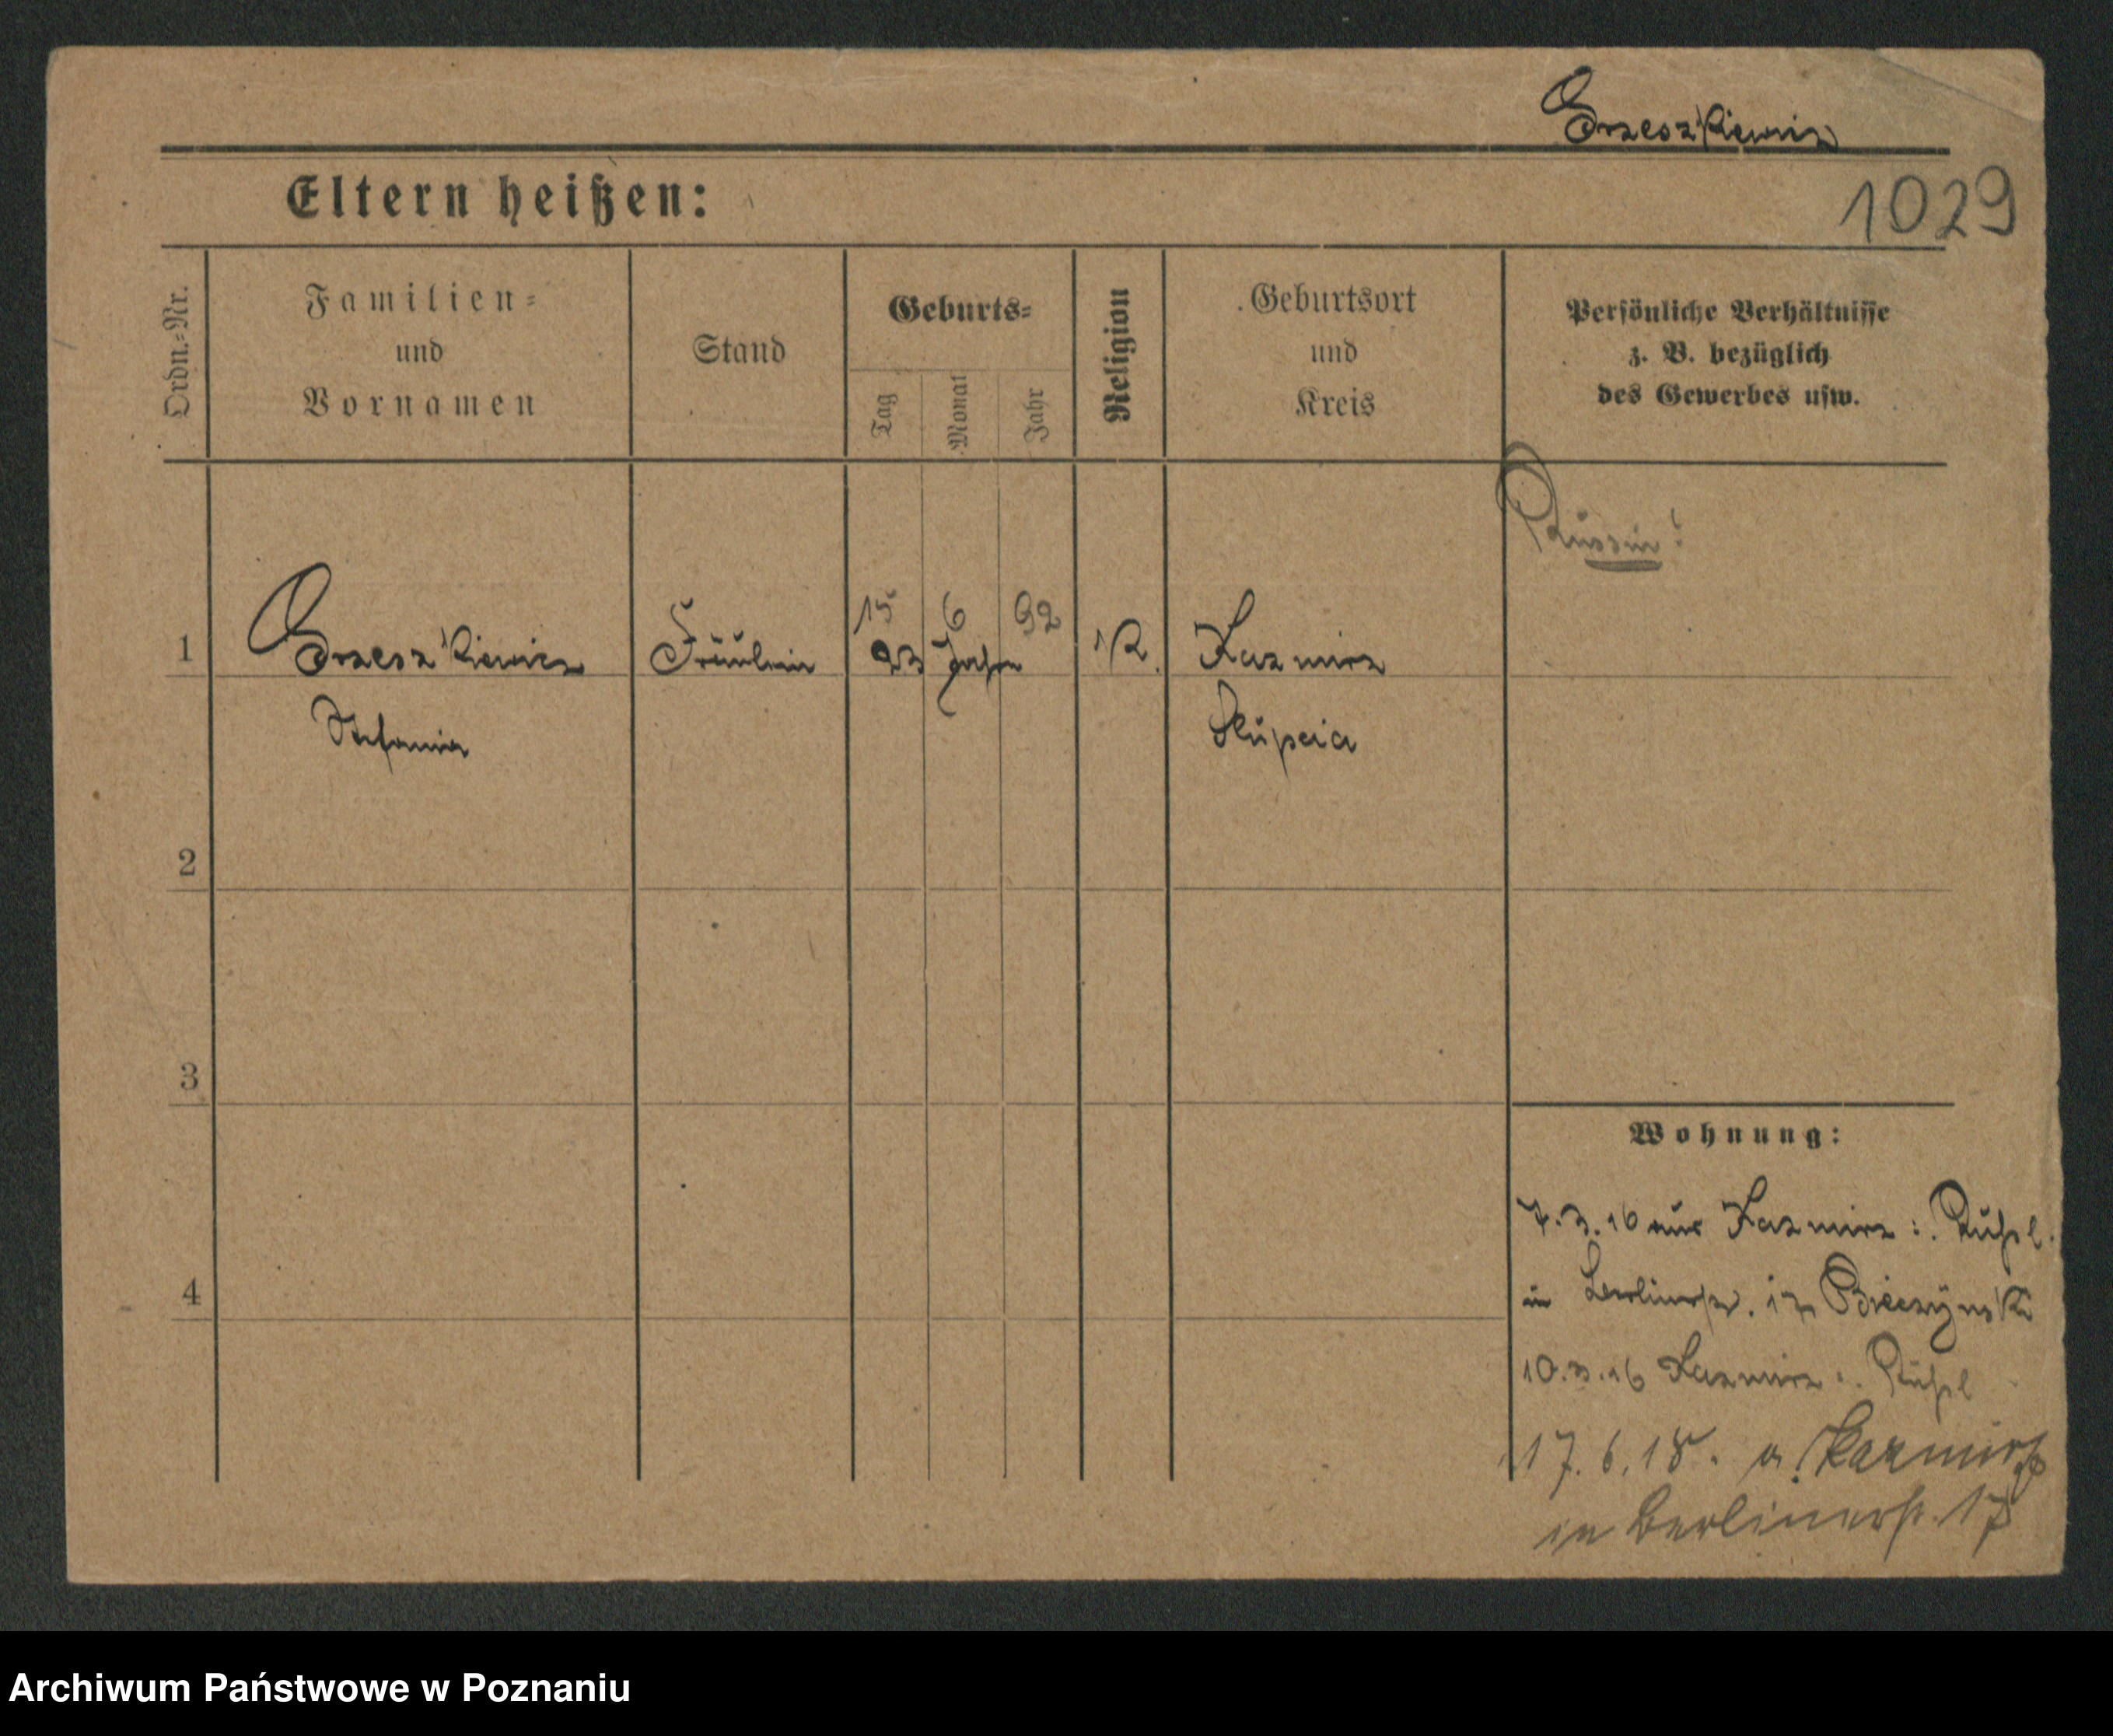 Orzeszkiewicz
Eltern heißen:
1029
Ordn.=Nr.
Familien=
und
Vornamen
Stand
Geburts=
Tag
Monat
Jahr
Religion
Geburtsort
und
Kreis
Persönliche Verhältnisse
z. B. bezüglich
des Gewerbes usw.
Russin!
15 6 92
1 Orzeszkiewicz Fräulein 23 Jahre K. Kazmirz
Stefania Slupcia
2
3
4
Wohnung:
7.3.16 aus Kazmirz :. Rußl.
in Berlinerstr. 17
10.3.16 Kazmirz :. Rußl
17.6.18. a. Kazmirz
in Berlinerstr. 17
Archiwum Państwowe w Poznaniu